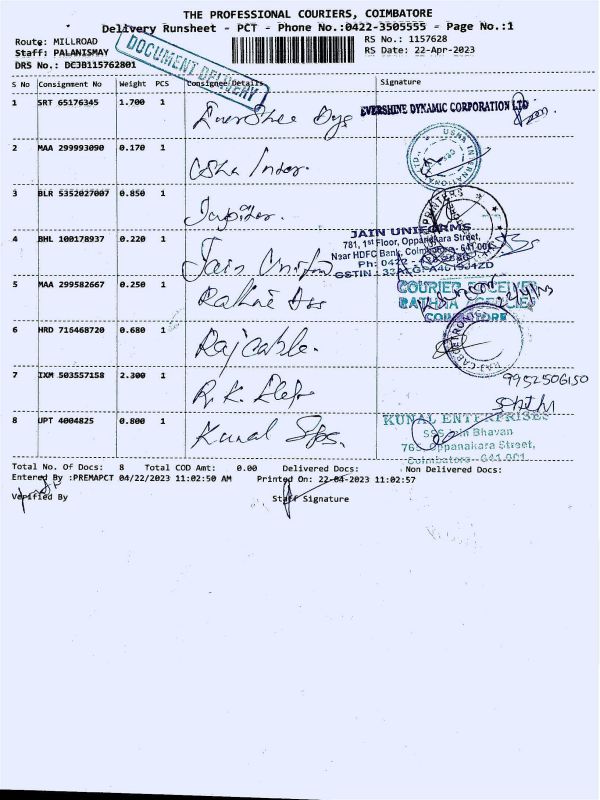 THE PROFESSIONAL COURIERS, COIMBATORE
Delivery Runsheet - PCT - Phone No.:0422-3505555 - Page No.:1
Route: MILLROAD
RS No.: 1157628
Staff: PALANISMAY
RS Date: 22-Apr-2023
DRS No.: DCJB115762801
DOCUMENT DELIVERY
S No Consignment No Weight PCS Consignee Details Signature
1 SRT 65176345 1.700 1 EverShee Dye
EVERSHINE DYNAMIC CORPORATION LTD
2 MAA 299993090 0.170 1 Usha Inter.
USHA INTERNATIONAL LTD
3 BLR 5352027007 0.850 1 Jupiter.
PRINTERS
4 BHL 100178937 0.220 1 Jain Uniform
JAIN UNIFORMS
781, 1st Floor, Oppanakara Street,
Near HDFC Bank, Coimbatore - 641 001
Ph: 0422 -
GSTIN : 33
5 MAA 299582667 0.250 1 Rathna Ass
COURIER RECEIVED
RATHNA AGENCIES
COIMBATORE
22/4/23
6 HRD 716468720 0.680 1 Raj cable.
7 IXM 503557158 2.300 1 R.K. Elec
9952506150
8 UPT 4004825 0.800 1 Kunal Sps.
KUNAL ENTERPRISES
SSS Jain Bhavan
765, Oppanakara Street,
Coimbatore - 641 001
Total No. Of Docs: 8 Total COD Amt: 0.00 Delivered Docs: Non Delivered Docs:
Entered By :PREMAPCT 04/22/2023 11:02:50 AM Printed On: 22-04-2023 11:02:57
Verified By Staff Signature